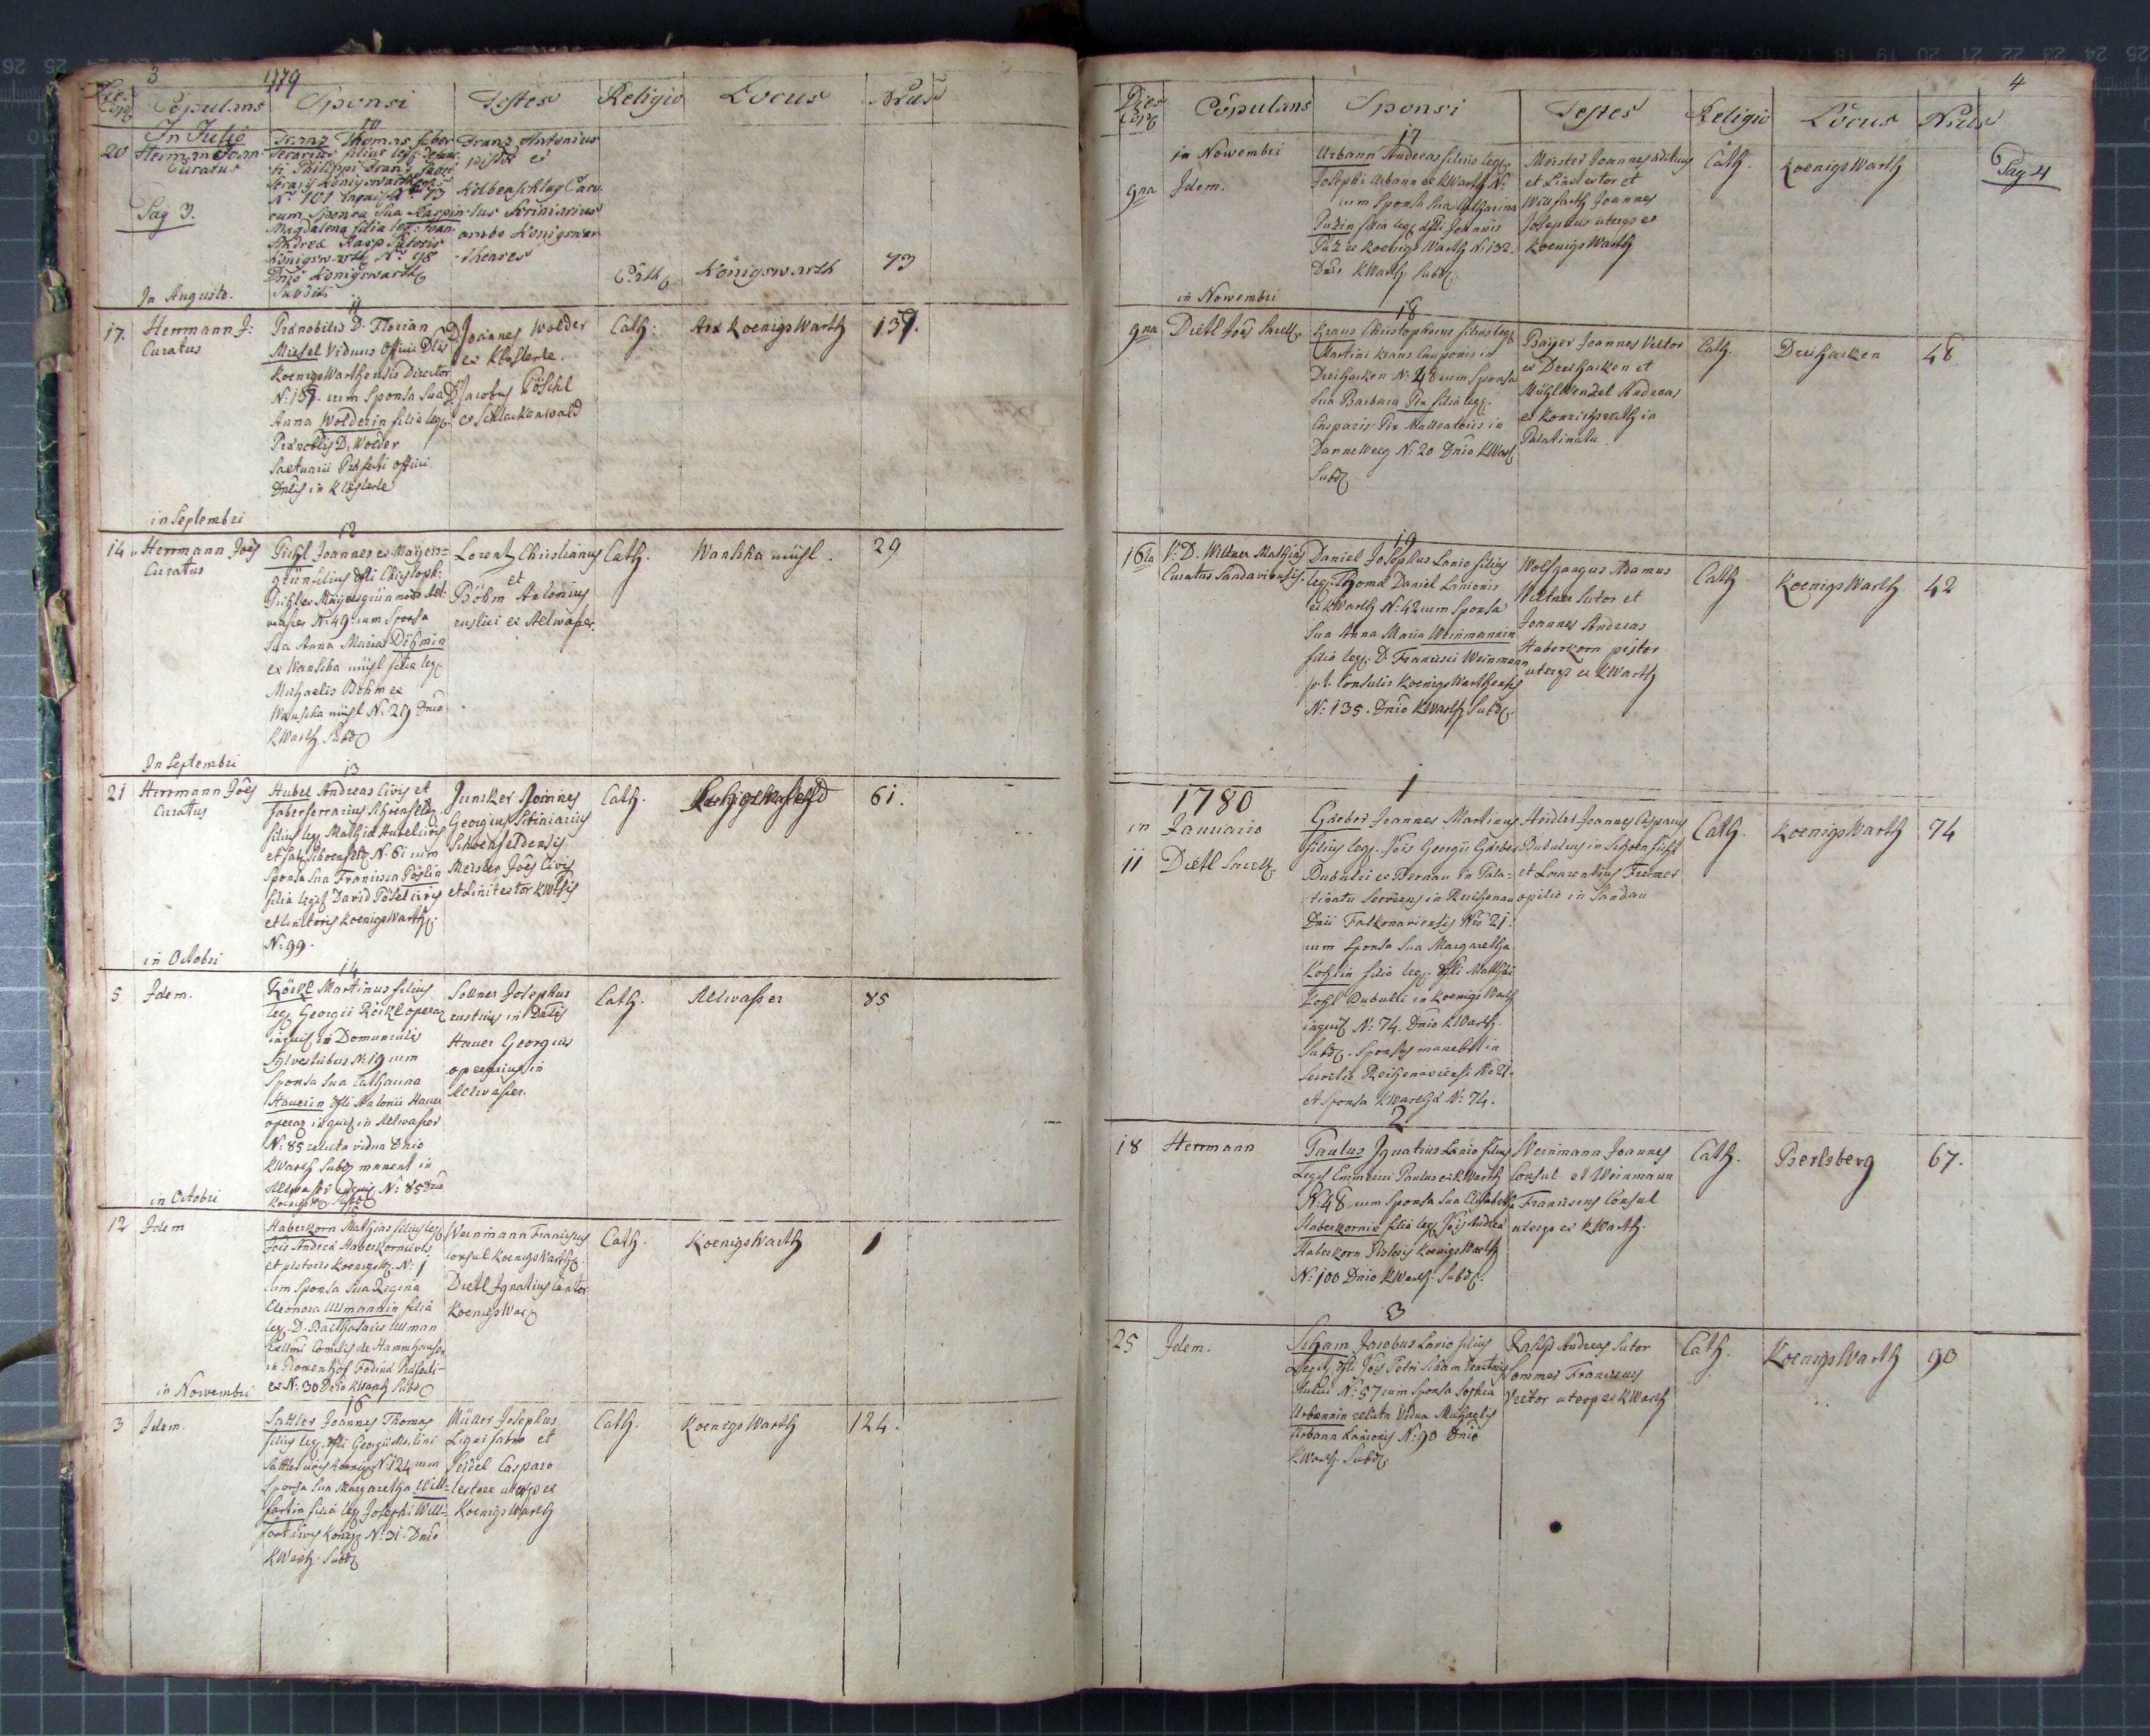 3
1779
Dies Cop.
Copulans
Sponsi
Testes
Religio
Locus
Nrus
In Julio
10
20
Herman Joan
Curatus
Pag 3.
Franz Thomas faber
ferrarius filius leg: defunc
ti Philippi Franz fabri
Königswarth
N° 101
cum Sponsa sua Raspin
Magdalena filia leg: Joan
Andreæ Rasp
Königswarth N° 98
Dnio Königswarth
Subditi
Franz Antonius
pistor et
Kolbenschlag Caro
lus Scriniarius
ambo Königswar
thenses
Cath
Königswarth
73
In Augusto.
11
17.
Herrmann J:
Curatus
Prænobilis D. Florian
Miesel Viduus Officii Dlis
KoenigsWarthensis Director
N: 137. cum Sponsa Sua
Anna Wolderin filia leg.
Prænoblis D. Wolder
officii
Dnlis in Klösterle
D. Joannes Wolder
ex Klösterle.
D. Jacobus Pöschl
ex Schlackenwald
Cath:
Arx KoenigsWarth
137.
in Septembri
12
14
Herrmann Joes
Curatus
Joannes ex Mayers=
grün filius dfti Christoph:
ex Mayersgrün modo Alt:
wasser N: 49 cum Sponsa
Sua Anna Maria Böhmin
ex Wanschka mühl filia leg
Michaelis Böhm ex
Wanschka mühl N: 29 Dnio
KWarth Subd
Lorentz Christianus
et
Böhm Antonius
rustici ex Altwasser.
Cath.
Wanschka mühl.
29
In Septembri
13
21
Herrmann Joes
Curatus
Hubel Andreas Civis et
faberferrarius Schoenfeld.
filius leg. Mathiæ Hubel civis
et fab. Schoenfeld N: 61 cum
Sponsa Sua Francisca Pöslin
filia leg. David Pösel civis
et KoenigsWarth.
N: 99.
Junker Joannes
Georgius Scriniarius
Schoenfeldensis
Meister Joes Civis
et Linitextor KWthsis
Cath.
61.
in Octobri
14
5
Idem.
Röckl Martinus filius
leg. Georgii Röckl operar
inquil in Domunculis
Sylvestribus N: 19 cum
Sponsa Sua Catharina
Hauerin dfti Antonii Hauer
operar inquil in Altwasser
N: 85 relicta vidua Dnio
KWarth Subd manent in
Altwasser inquil N: 85 Dnio
Sollner Josephus
rusticus in
Hauer Georgius
operarius in
Altwasser.
Cath.
Altwasser
85
in Octobri
12
Idem
Haberkorn Mathias filius leg
Jois Andreæ Haberkorn civis
et pistoris Koenigsw. N: 1
cum Sponsa Sua Regina
Eleonora Ullmannin filia
leg. D. Balthasaris Ullman
Excellmi Comitis de
in Fodinæ Præfecti
ex N: 30 Dnio KWarth Subd
Weinmann Franciscus
Consul KoenigsWarth
Dietl Ignatius Cantor
KoenigsWar
Cath.
KoenigsWarth
1
in Novembri
16
3
Idem.
Sattler Joannes Thomas
filius leg. dfti Georgii
Sattler civis Koenigs. N: 124 cum
Sponsa Sua Margaretha Will=
fartin filia leg. Josephi Will=
fart civis Koenigs N: 31. Dnio
KWarth Subd
Müller Josephus
Ligni fabro et
Seidel Casparo
textore utrisq ex
KoenigsWarth
Cath.
KoenigsWarth
124.
4
Dies Cop.
Copulans
Sponsi
Testes
Religio
Locus
Nrus
in Novembri
17
9na
Idem.
Urbann Andreas filius leg.
Josephi Urbann ex KWarth N:
cum Sponsa Sua Catharina
Puzin filia leg. dfti Joannis
Puz ex KoenigsWarth N: 132.
Dnio KWarth. Subd.
Meister Joannes
et Linitextor et
Willfarth Joannes
Josephus uterq ex
KoenigsWarth
Cath.
KoenigsWarth
6
Pag 4
in Novembri
18
9na
Dietl Joes Sacell.
Kraus Christophorus filius leg
Martini Kraus Cauponis in
Dreihacken N: 48 cum Sponsa
Sua Barbara Pix filia leg.
Casparis Pix Malleatoris in
Dannaweg N: 20 Dnio KWart
Subd
Bayer Joannes Vietor
ex Dreihacken et
Mühl Wenzel Andreas
ex in
Palatinatu.
Cath.
Dreihacken
48
19
16ta
V: D. Wiltner Mathias
Curatus Sandaviensis.
Daniel Josephus Lanio filius
leg. Thomæ Daniel Lanionis
ex KWarth N: 42 cum Sponsa
Sua Anna Maria Weinmannin
filia leg. D. Francisci Weinmann
p. t. Consulis KoenigsWarthensis
N: 135. Dnio KWarth Subd.
Wolfgangus Adamus
Wiltner Sutor et
Joannes Andreas
Haberkorn pistor
uterq ex KWarth
Cath
KoenigsWarth
42
1780
1
in Januario
11
Dietl Sacell.
Gärber Joannes Martinus
filius leg. Jois Georgii Gärber
Bubulci ex Bernau in Pala=
tinatu Serviens in Reichenau
Dnii Falkonaviensis Nro 21.
cum Sponsa Sua Margaretha
Kohlin filia leg. dfti Matthæi
Kohl Bubulci in KoenigsWarth
inquil N: 74. Dnio KWarth.
Subd. Sponsus manebit in
Servitio Reichenaviensi No 21.
et Sponsa KWarthæ N: 74.
Haidler Joannes Casparus
Bubulcus in Schoenficht
et Laurentius
opilio in Sandau
Cath.
KoenigsWarth
74
2
18
Herrmann
Paulus Ignatius Lanio filius
Leg. Emmerici Paulus ex KWarth
N: 48 cum Sponsa Sua Elisabetha
Haberkornin filia leg. Jois Andreæ
Haberkorn Pistoris KoenigsWarth
N: 100 Dnio KWarth. Subd.
Weinmann Joannes
Consul et Weinmann
Franciscus Consul
uterq ex KWarth.
Cath.
Perlsberg
67.
3
25
Idem.
Scham Jacobus Lanio filius
Leg. dfti Jois Petri Scham
N: 57 cum Sponsa Sophia
Urbannin relicta Vidua Michaelis
Urbann Lanionis N: 90 Dnio
KWarth. Subd.
Andreas Sutor
Sommer Franciscus
Vietor uterq ex KWarth
Cath.
KoenigsWarth
90